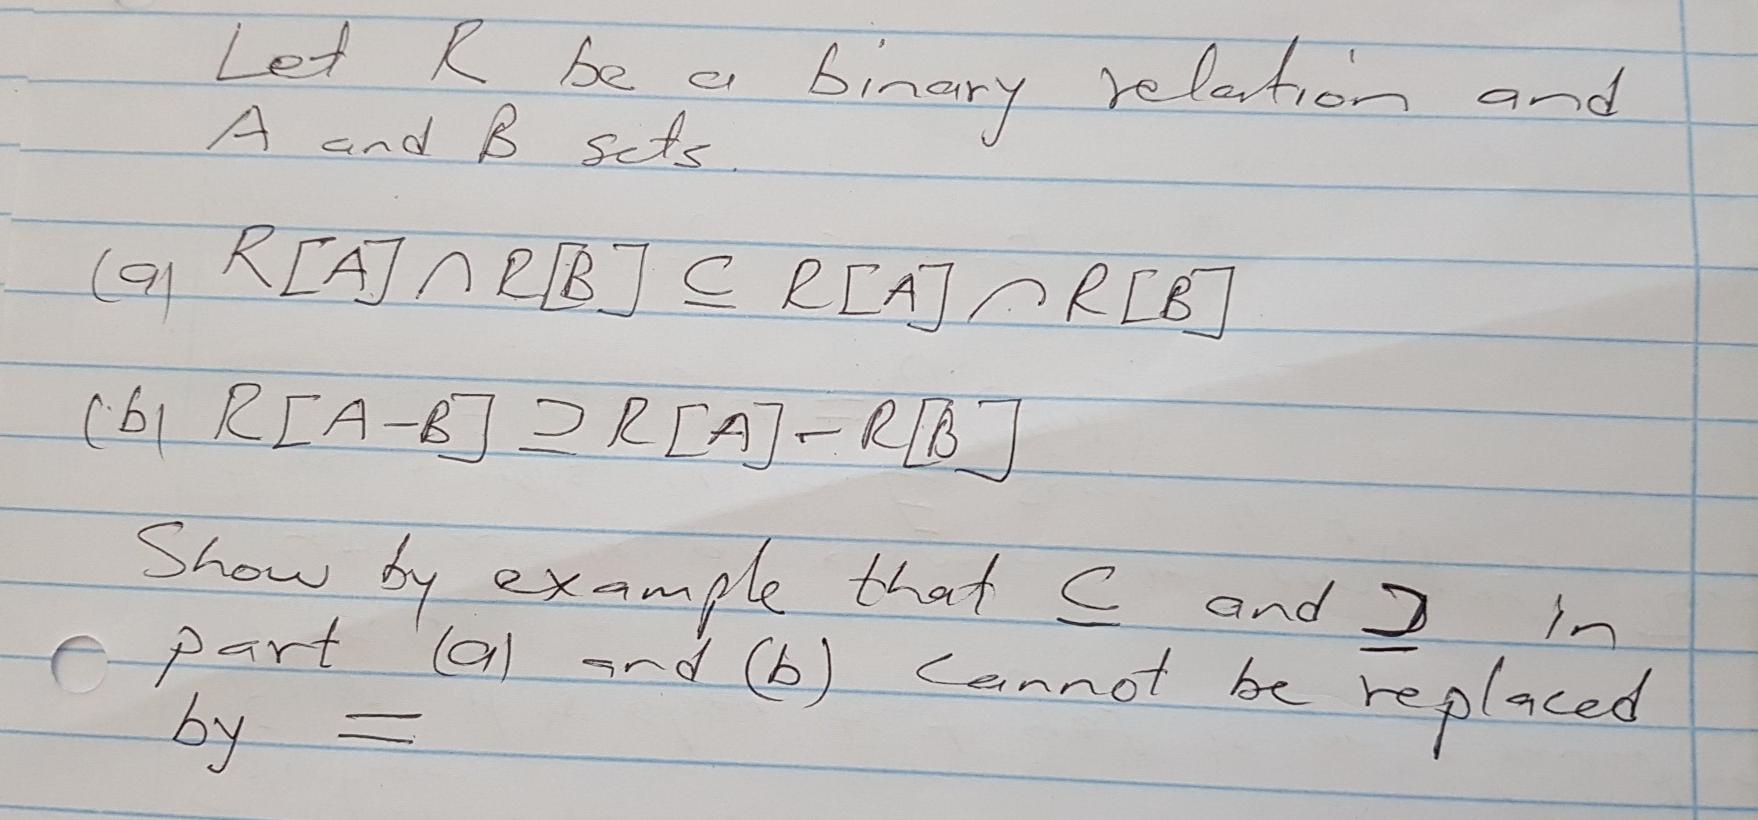 Let R be a binary relation and
A and B sets.
(a) R[A] ∩ R[B] ⊆ R[A] ∩ R[B]
(b) R[A-B] ⊇ R[A] - R[B]
Show by example that ⊆ and ⊇ in
part (a) and (b) cannot be replaced
by =